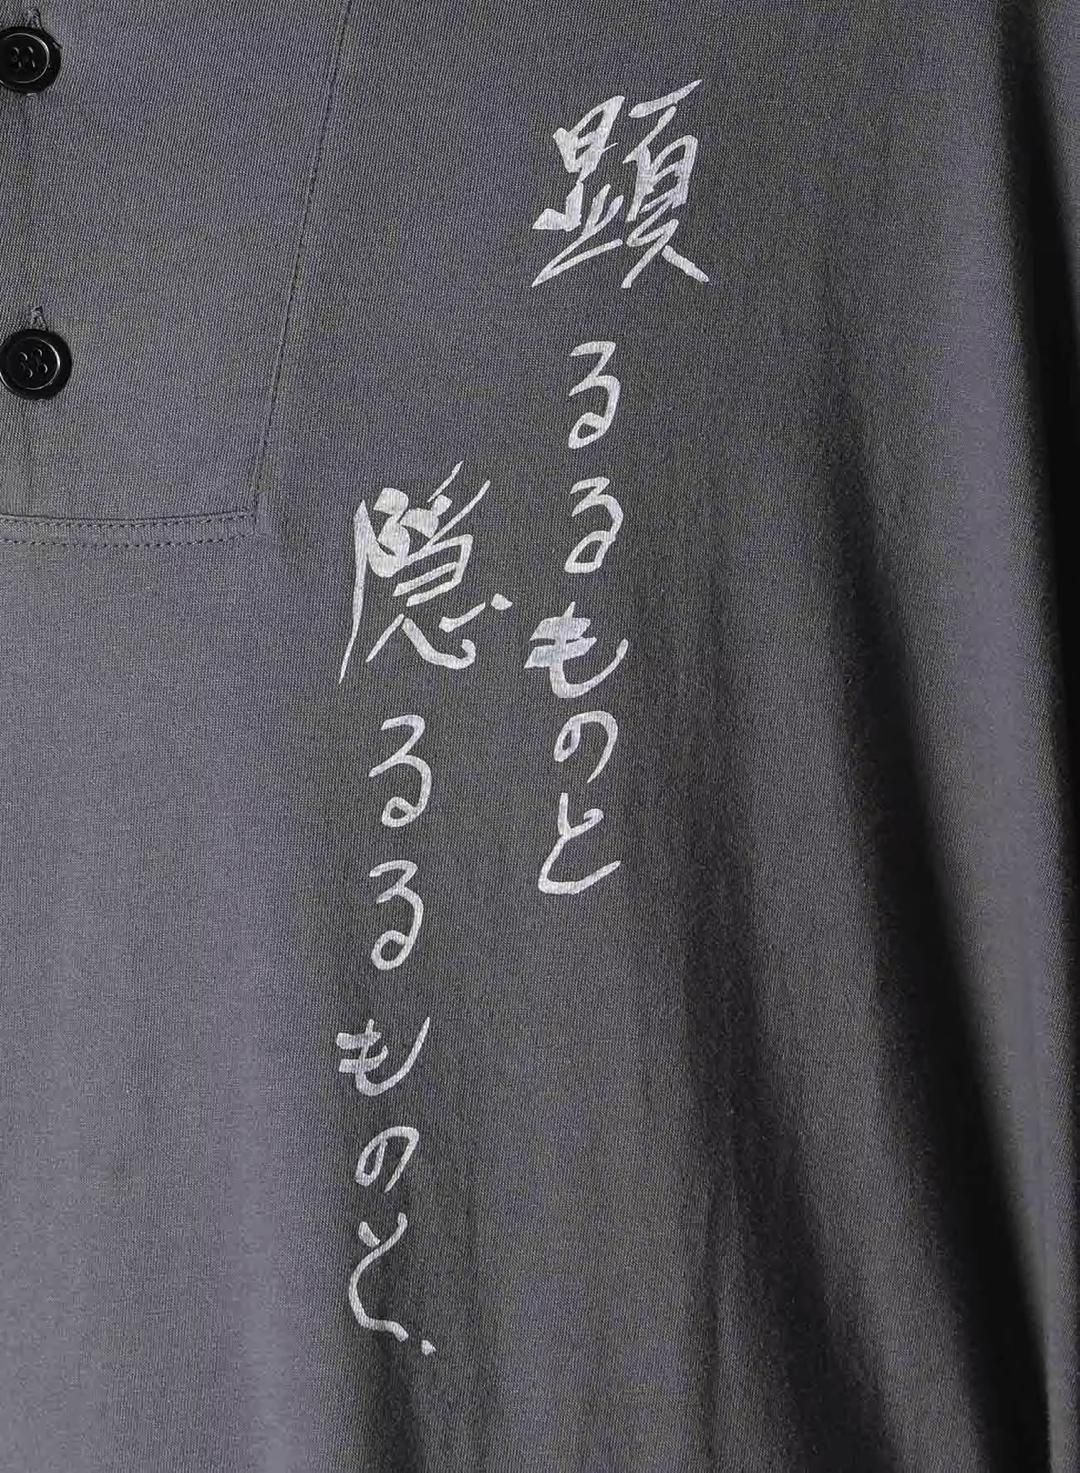 顕るるものと
隠るるものと、